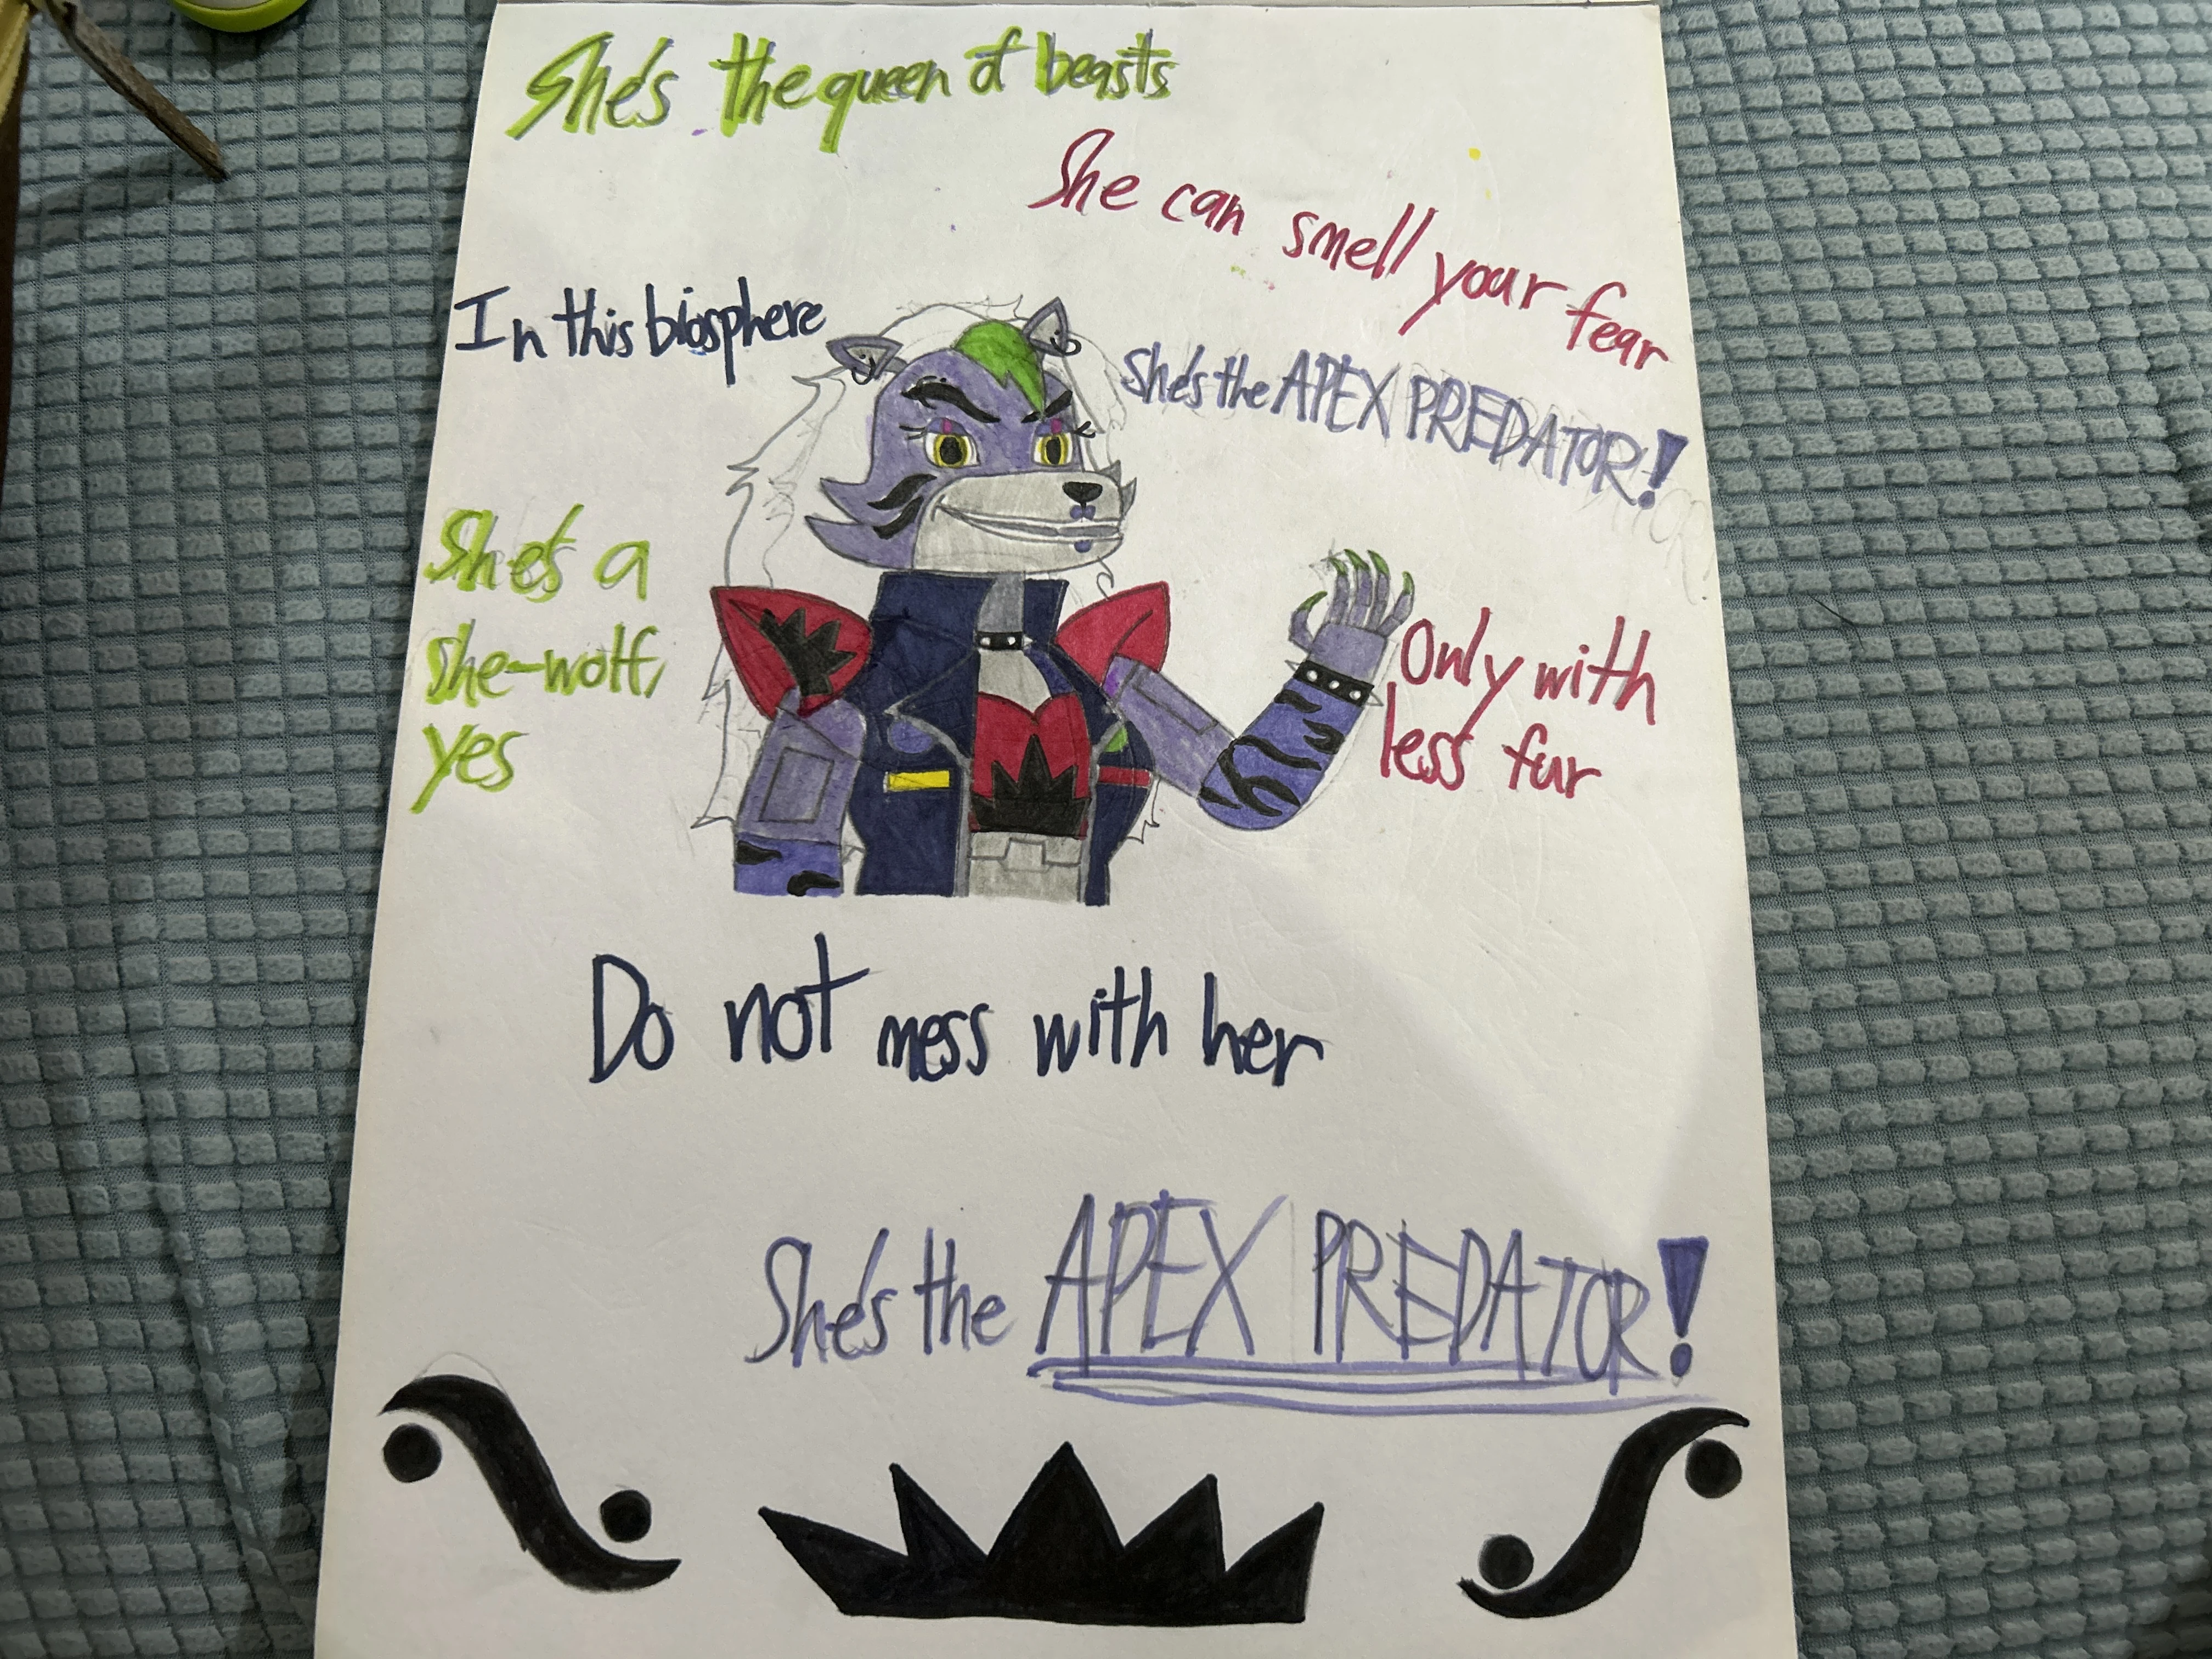 She's the queen of beasts
She can smell your fear
In this biosphere
She's the APEX PREDATOR!
She's a
she-wolf,
yes
Only with
less fur
Do not mess with her
She's the APEX PREDATOR!